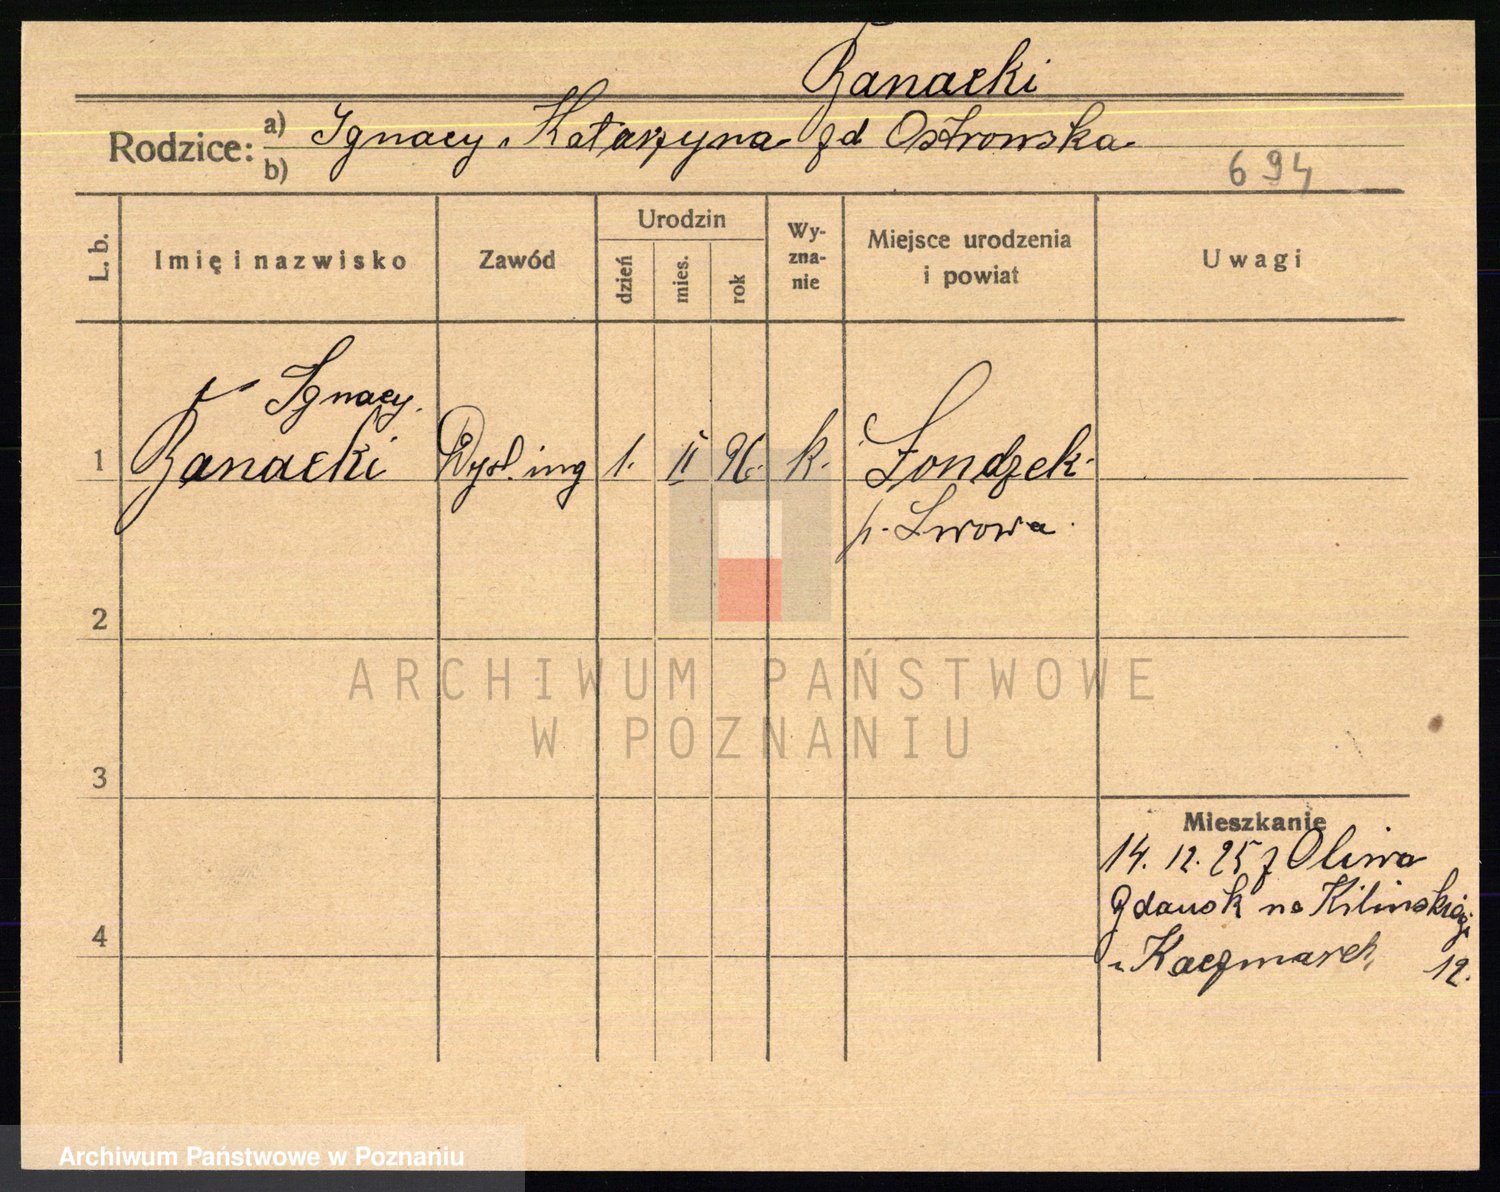 Banacki
Rodzice: a) Ignacy i Katarzyna zd Ostrowska
b)
694
L. b.
Imię i nazwisko
Zawód
Urodzin
dzień
mies.
rok
Wy-
zna-
nie
Miejsce urodzenia
i powiat
Uwagi
Ignacy
1 Banacki Dypl. ing 1. II 96. k.
p. Lwowa
2
ARCHIWUM PAŃSTWOWE
W POZNANIU
3
Mieszkanie
14. 12. 25 z Oliwa
Gdansk na Kilinskiego
4
u Kaczmarek 12.
Archiwum Państwowe w Poznaniu